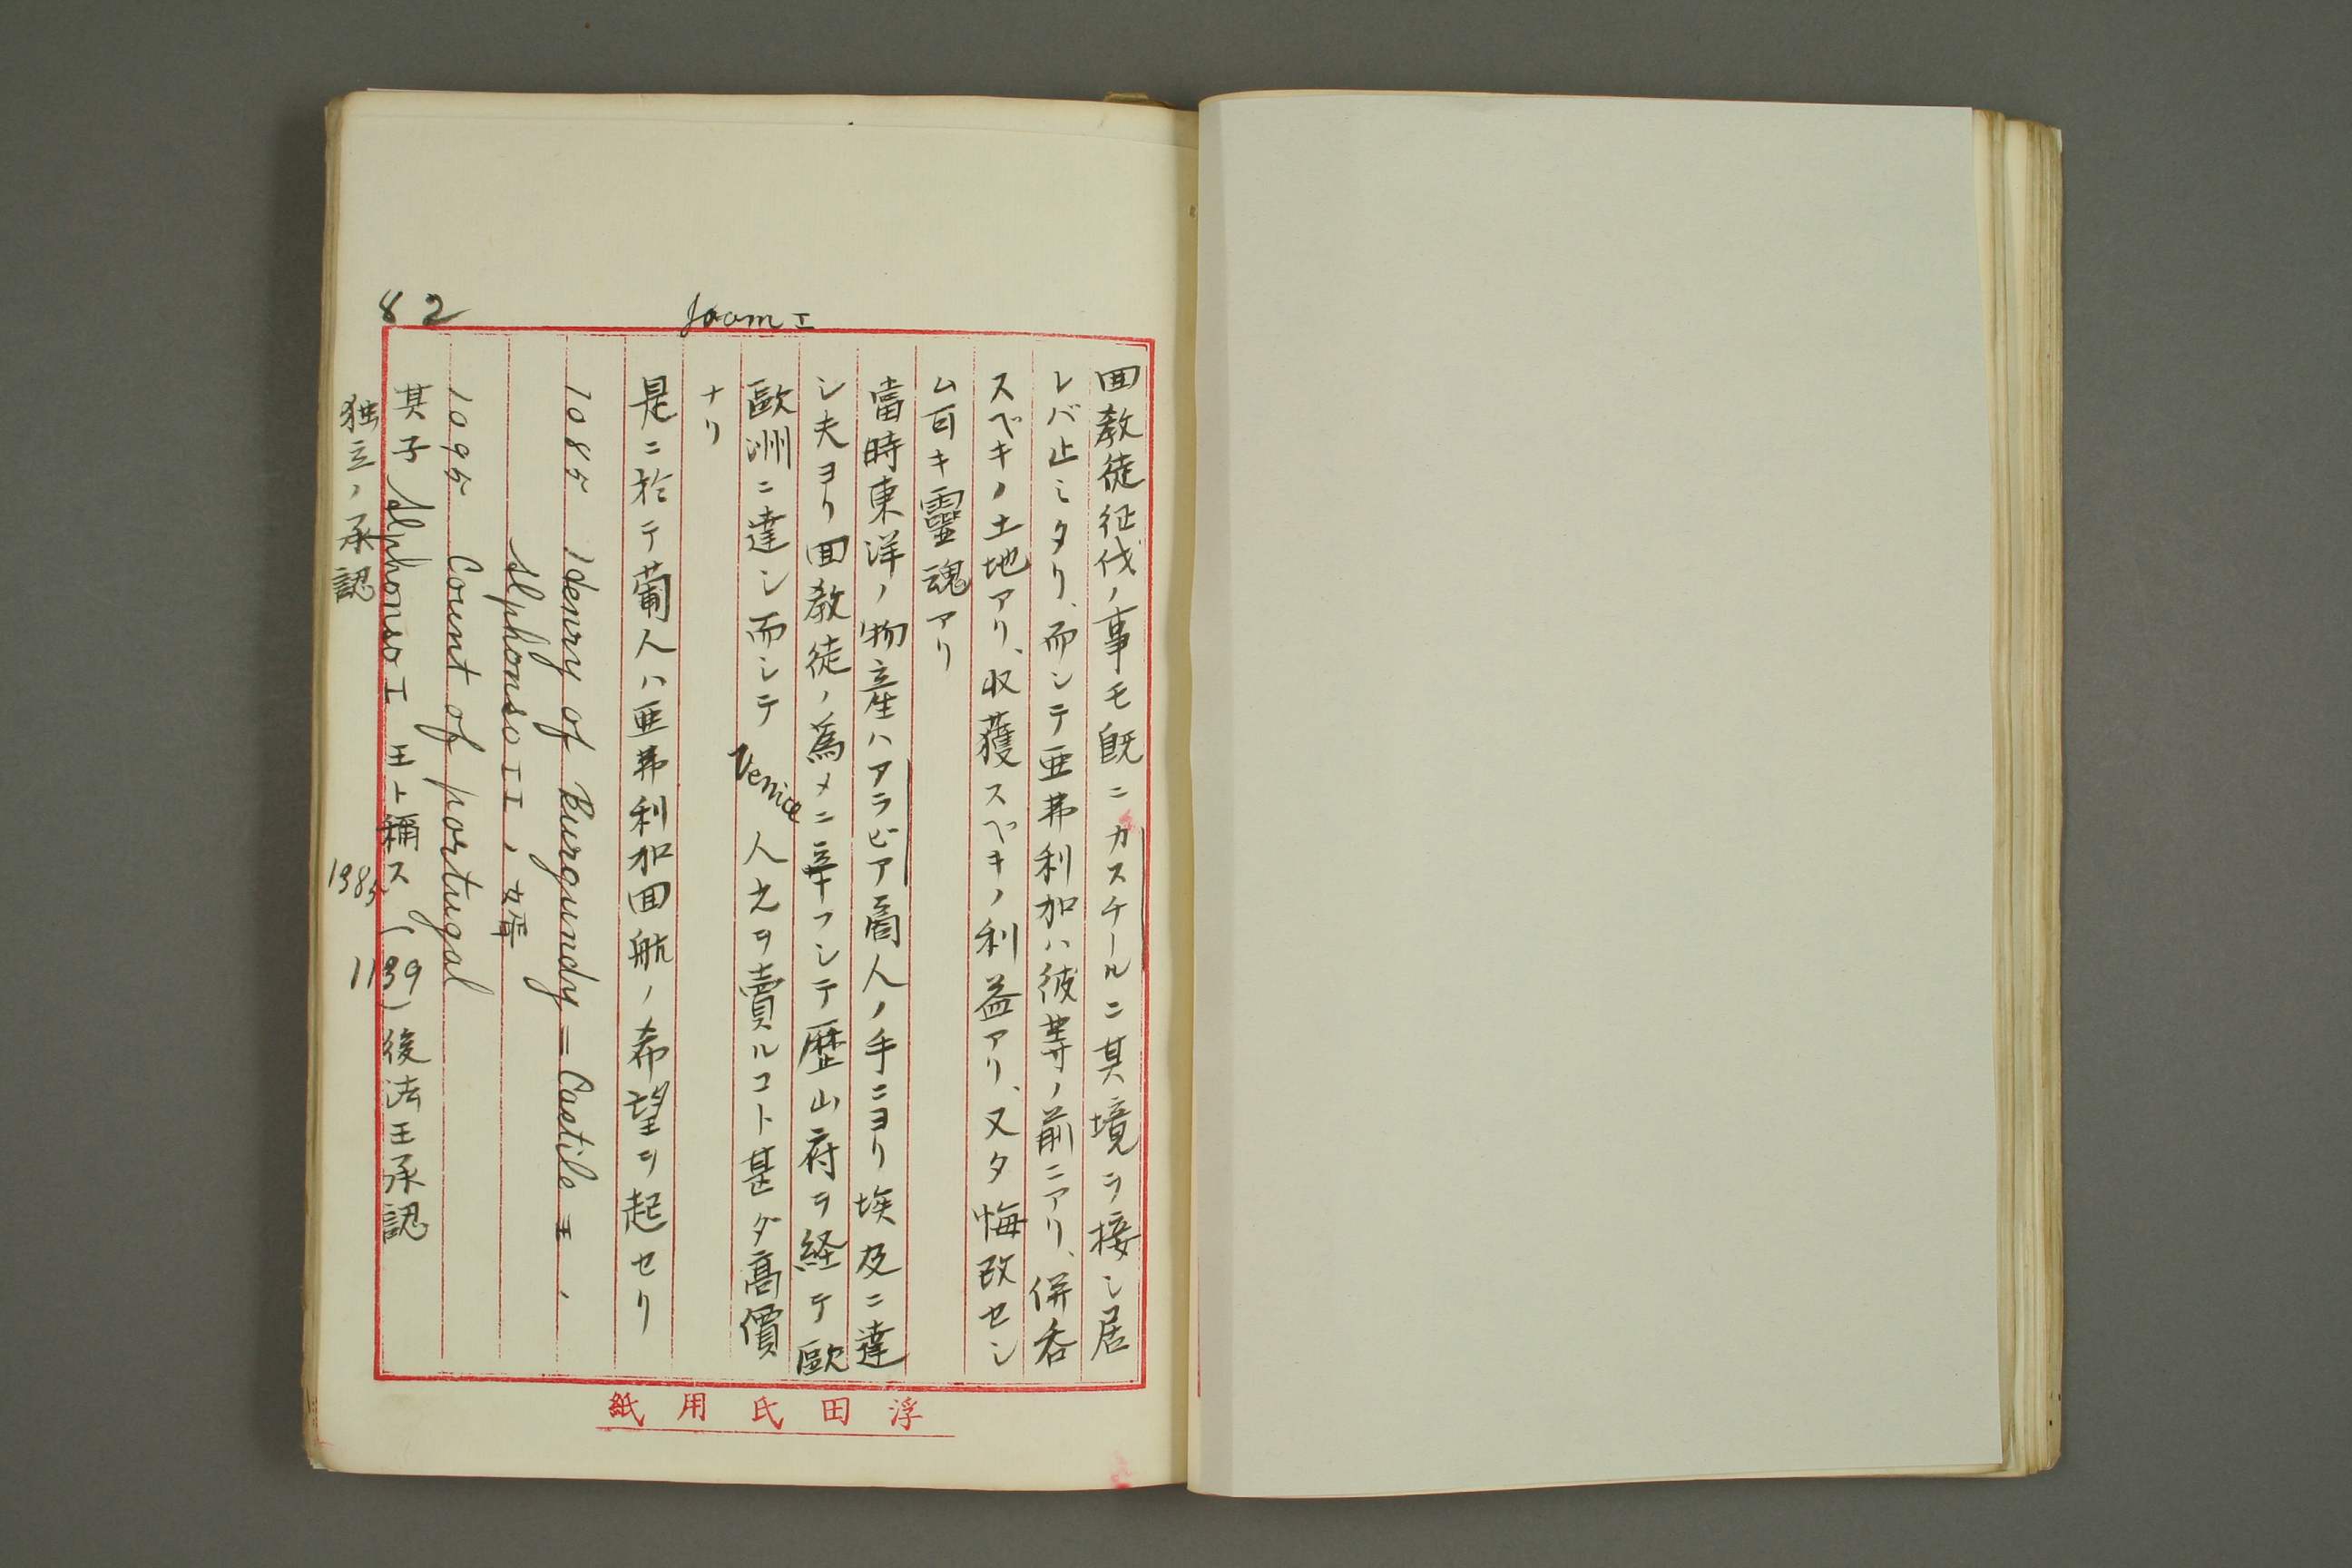 Joam I
回教徒征伐ノ事モ既ニカスチールニ其境ヲ接シ居
レバ止ミタリ、而シテ亜弗利加ハ彼等ノ前ニアリ、併呑
スベキノ土地アリ、収獲スベキノ利益アリ、又タ悔改セシ
ム可キ靈魂アリ
當時東洋ノ物産ハアラビア商人ノ手ニヨリ埃及ニ達
シ夫ヨリ回教徒ノ為メニ率フシテ歴山府ヲ経テ歐
歐洲ニ達シ而シテ Venice 人之ヲ賣ルコト甚ダ高價
ナリ
是ニ於テ葡人ハ亜弗利加回航ノ希望ヲ起セリ
1085 Henry of Burgundy = Castile 王、
Alphonso II ノ婿
1095 Count of portugal
其子 Alphonso I 王ト稱ス (1139) 後法王承認
独立ノ承認 1385
82
浮田氏用紙